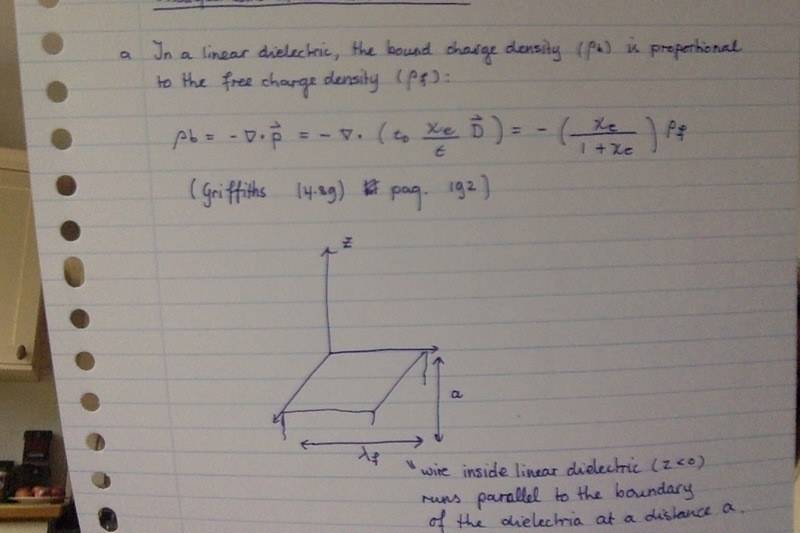 a In a linear dielectric, the bound charge density (ρb) is proportional
to the free charge density (ρf):
ρb = - ∇·p⃗ = - ∇· (ε0 χe/ε D⃗) = - (χe/1+χe) ρf
(Griffiths 14.39) pag. 192)
z
a
λf
"wire inside linear dielectric (z<0)
runs parallel to the boundary
of the dielectria at a distance a.